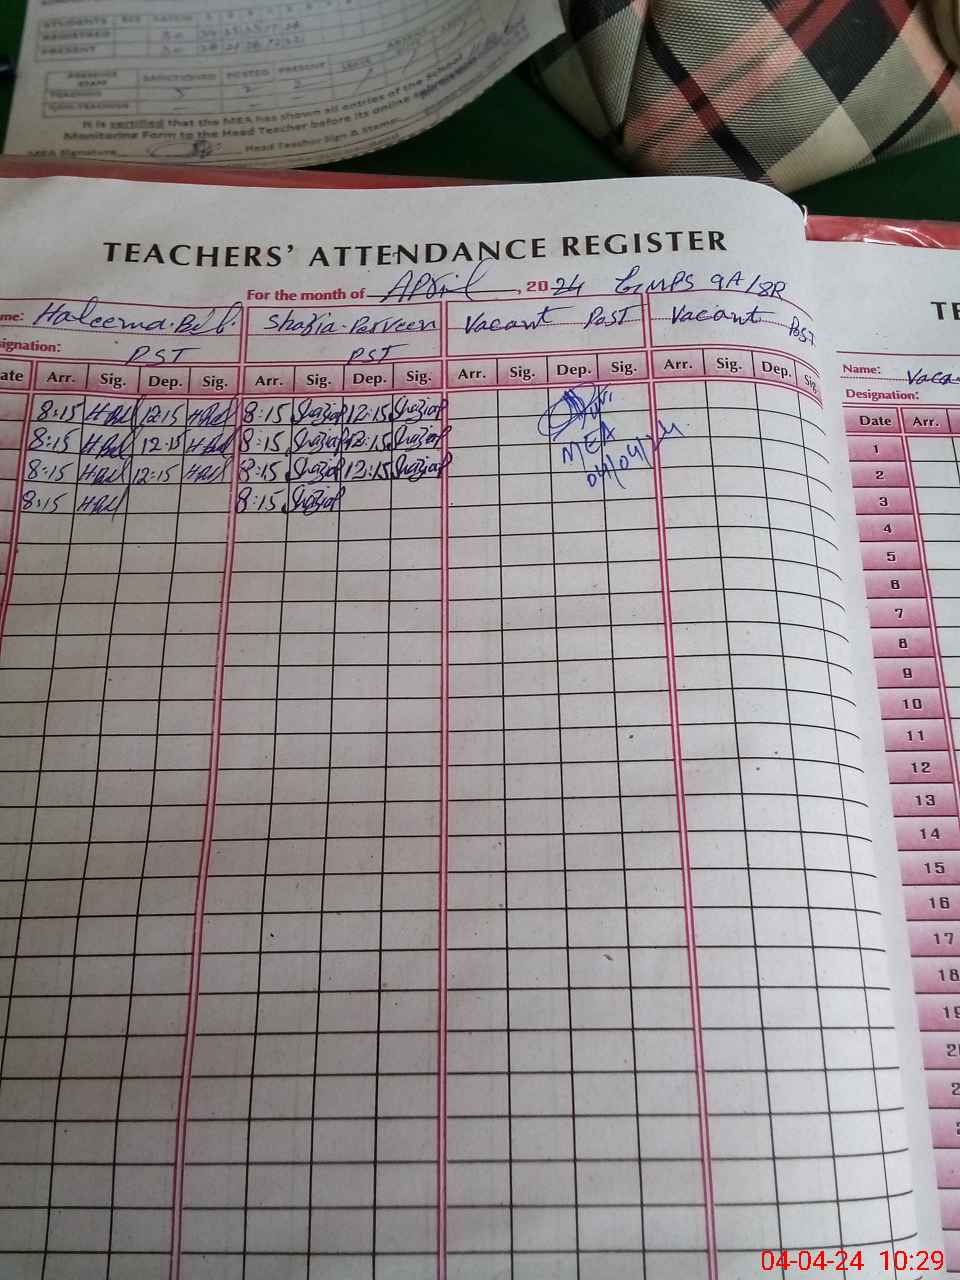 STUDENTS
REGISTERED
PRESENT
PRESENT STAFF SANCTIONED POSTED PRESENT
TEACHING
NON-TEACHING
It is certified that the MEA has shown all entries of the school
Monitoring Form to the Head Teacher before its online
MEA Signature Head Teacher Sign & Stamp:
TEACHERS' ATTENDANCE REGISTER
For the month of April, 2024 GMPS 9A/8R
me: Haleema.Bibi. Shazia.Parveen Vacant Post Vacant Post
signation: PST PST
ate Arr. Sig. Dep. Sig. Arr. Sig. Dep. Sig. Arr. Sig. Dep. Sig. Arr. Sig. Dep. Sig.
8:15 12:15 8:15 Shazia P 12:15 Shazia P
8:15 12:15 8:15 Shazia P 12:15 Shazia P
8:15 12:15 8:15 Shazia P 12:15 Shazia P
8:15 8:15 Shazia P
MEA
04/04/24
TE
Name: Vaca
Designation:
Date Arr.
1
2
3
4
5
6
7
8
9
10
11
12
13
14
15
16
17
18
19
2
2
04-04-24 10:29